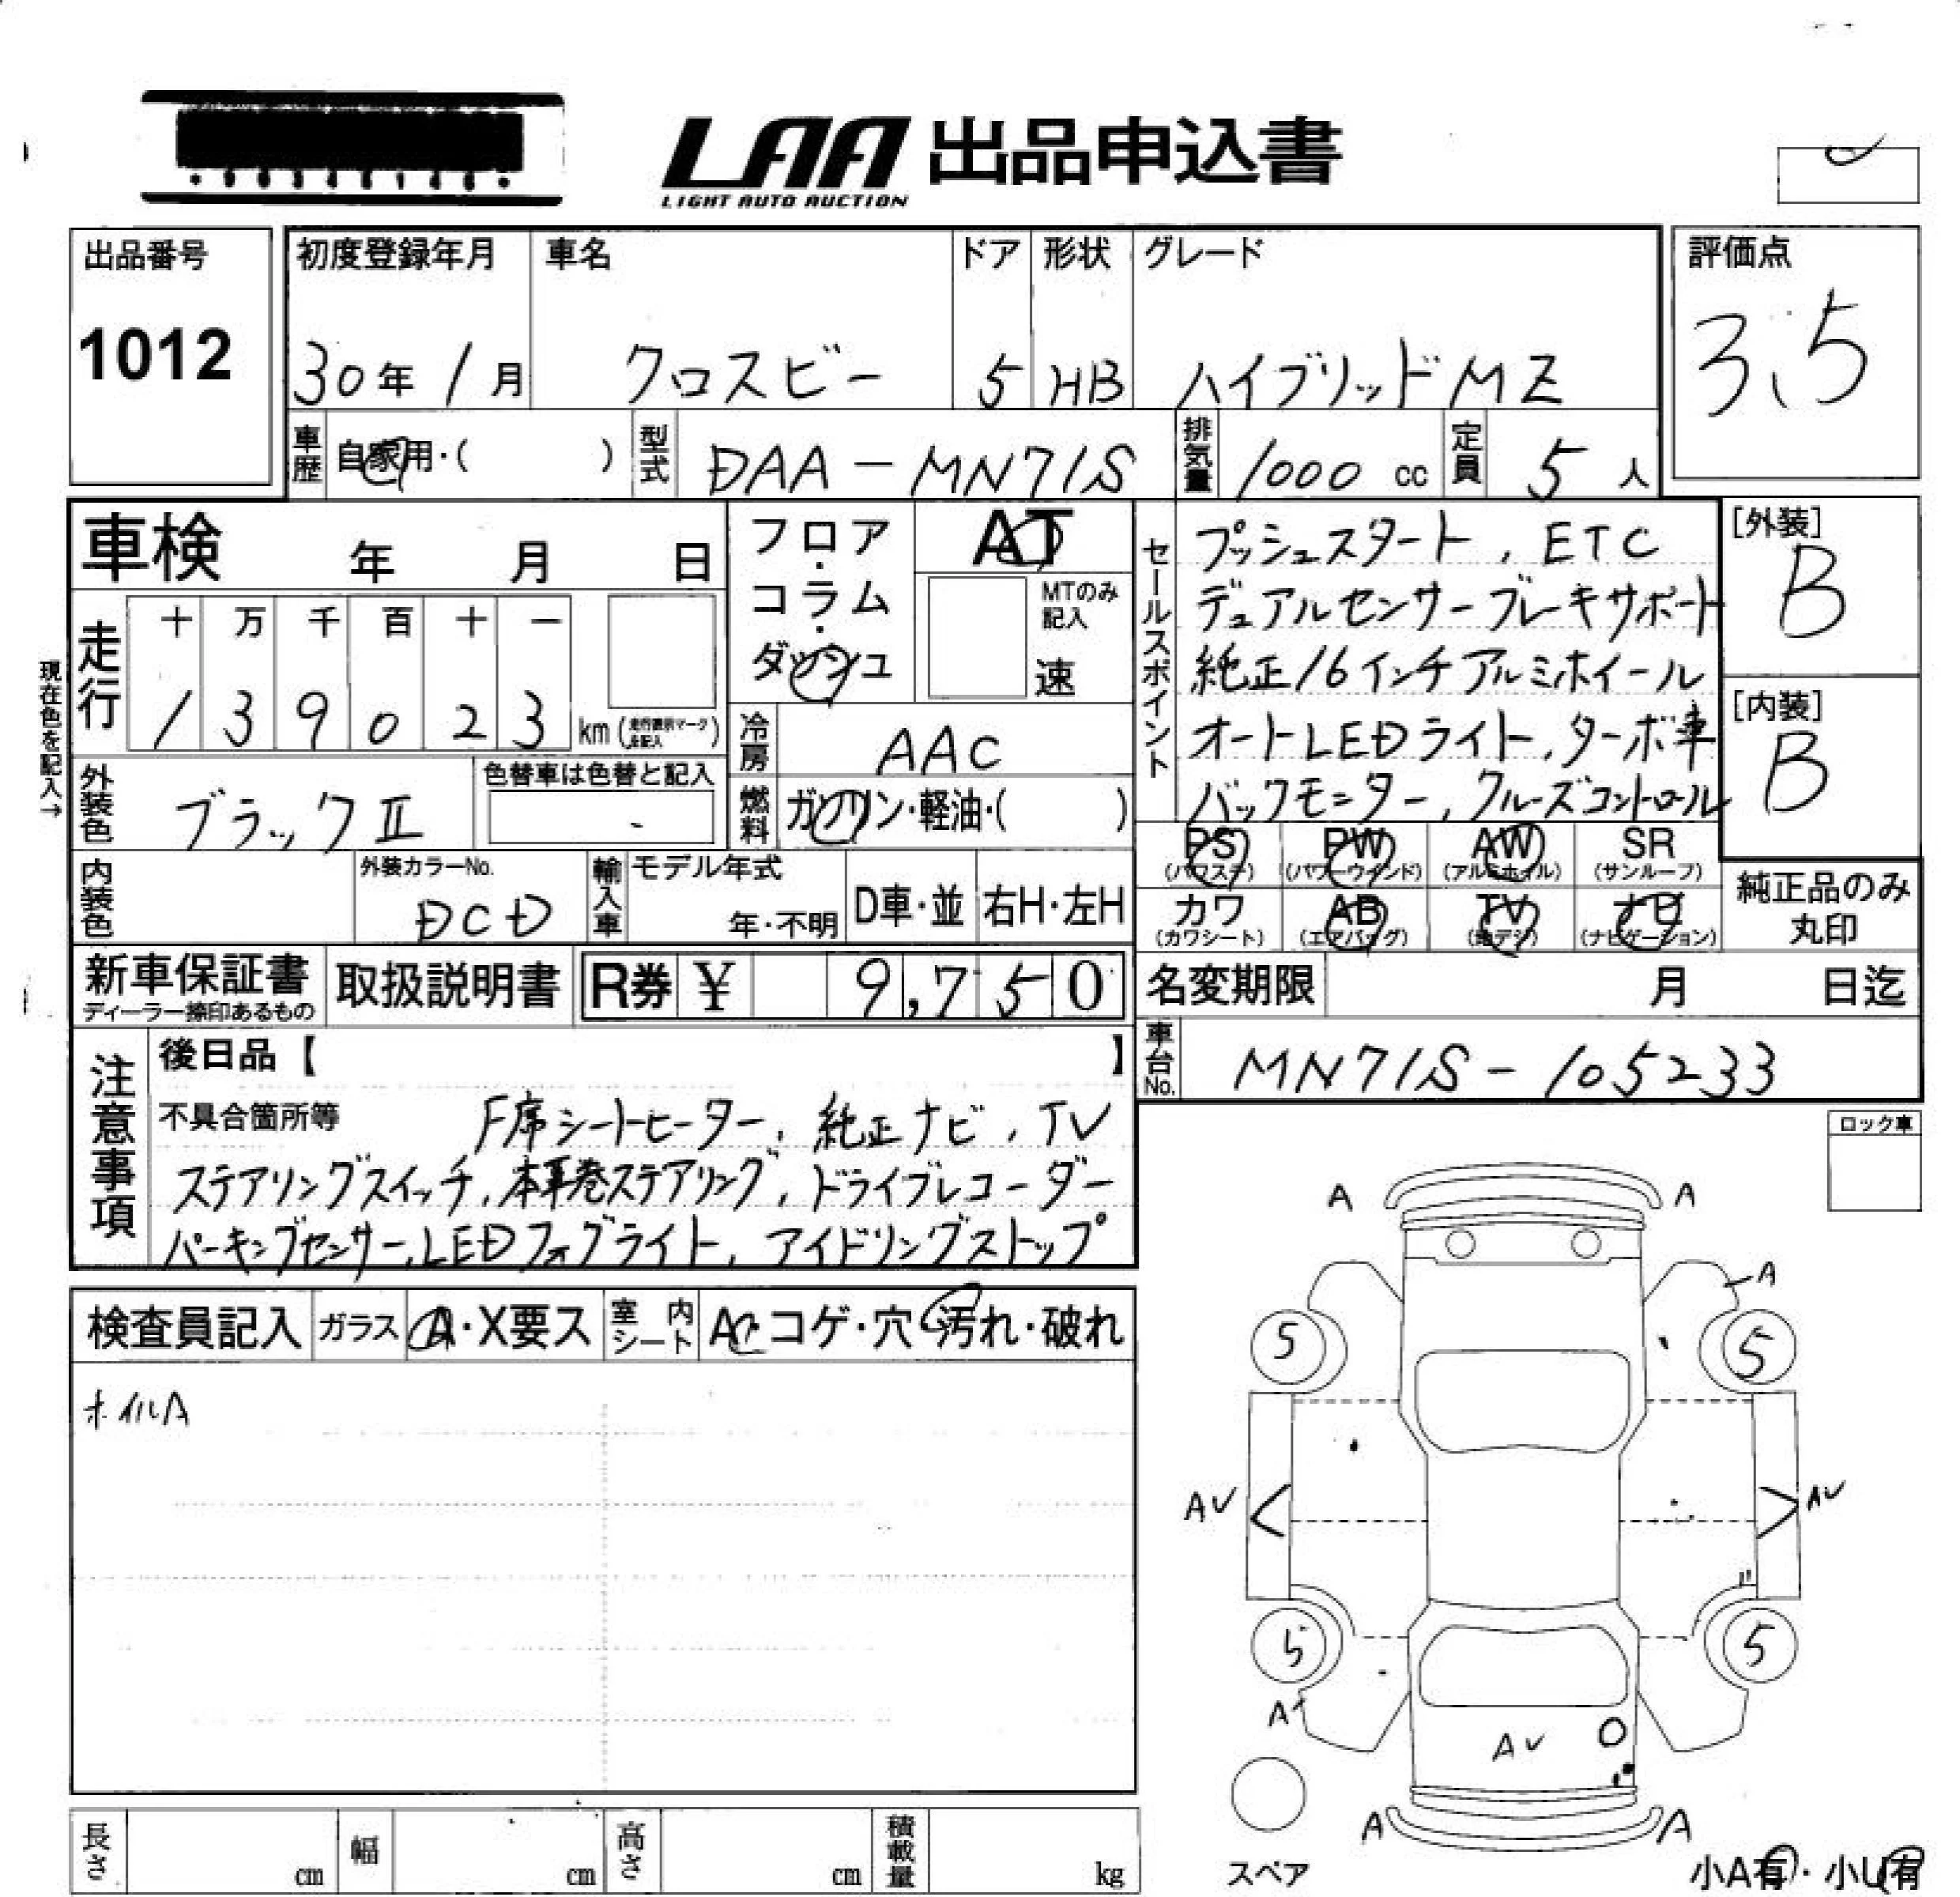 LAA 出品申込書
LIGHT AUTO AUCTION
出品番号 初度登録年月 車名 ドア 形状 グレード 評価点
1012 30年 1月 クロスビー 5 HB ハイブリッドMZ 3.5
車歴 自家用・( ) 型式 DAA-MN71S 排気量 1000 cc 定員 5 人
車検 年 月 日
フロア・コラム・ダッシュ
AT
MTのみ記入
速
セールスポイント
プッシュスタート, ETC
デュアルセンサーブレーキサポート
純正16インチアルミホイール
オートLEDライト,ターボ車
バックモニター,クルーズコントロール
[外装]
B
[内装]
B
現在色を記入→
走行 十 万 千 百 十 一
1 3 9 0 2 3 km
冷房 AAC
外装色 ブラックⅡ 色替車は色替と記入
燃料 ガソリン・軽油・( )
内装色 外装カラーNo. DCD 輸入車 モデル年式 年・不明 D車・並 右H・左H
PS (パワステ) PW (パワーウインド) AW (アルミホイル) SR (サンルーフ)
カワ (カワシート) AB (エアバッグ) TV (地デジ) ナビ (ナビゲーション)
純正品のみ丸印
新車保証書 ディーラー捺印あるもの 取扱説明書 R券 ¥ 9,750 名変期限 月 日迄
車台No. MN71S-105233
注意事項
後日品【 】
不具合箇所等 F席シートヒーター, 純正ナビ, TV
ステアリングスイッチ,本革巻ステアリング,ドライブレコーダー
パーキングセンサー,LEDフォグライト, アイドリングストップ
ロック車
検査員記入 ガラス A・X要ス 室内シート Aℂコゲ・穴・汚れ・破れ
ホイルA
A A
A
5 5
AV AV
5 5
A
AV
A A
スペア
小A有・小U有
長さ cm 幅 cm 高さ cm 積載量 kg